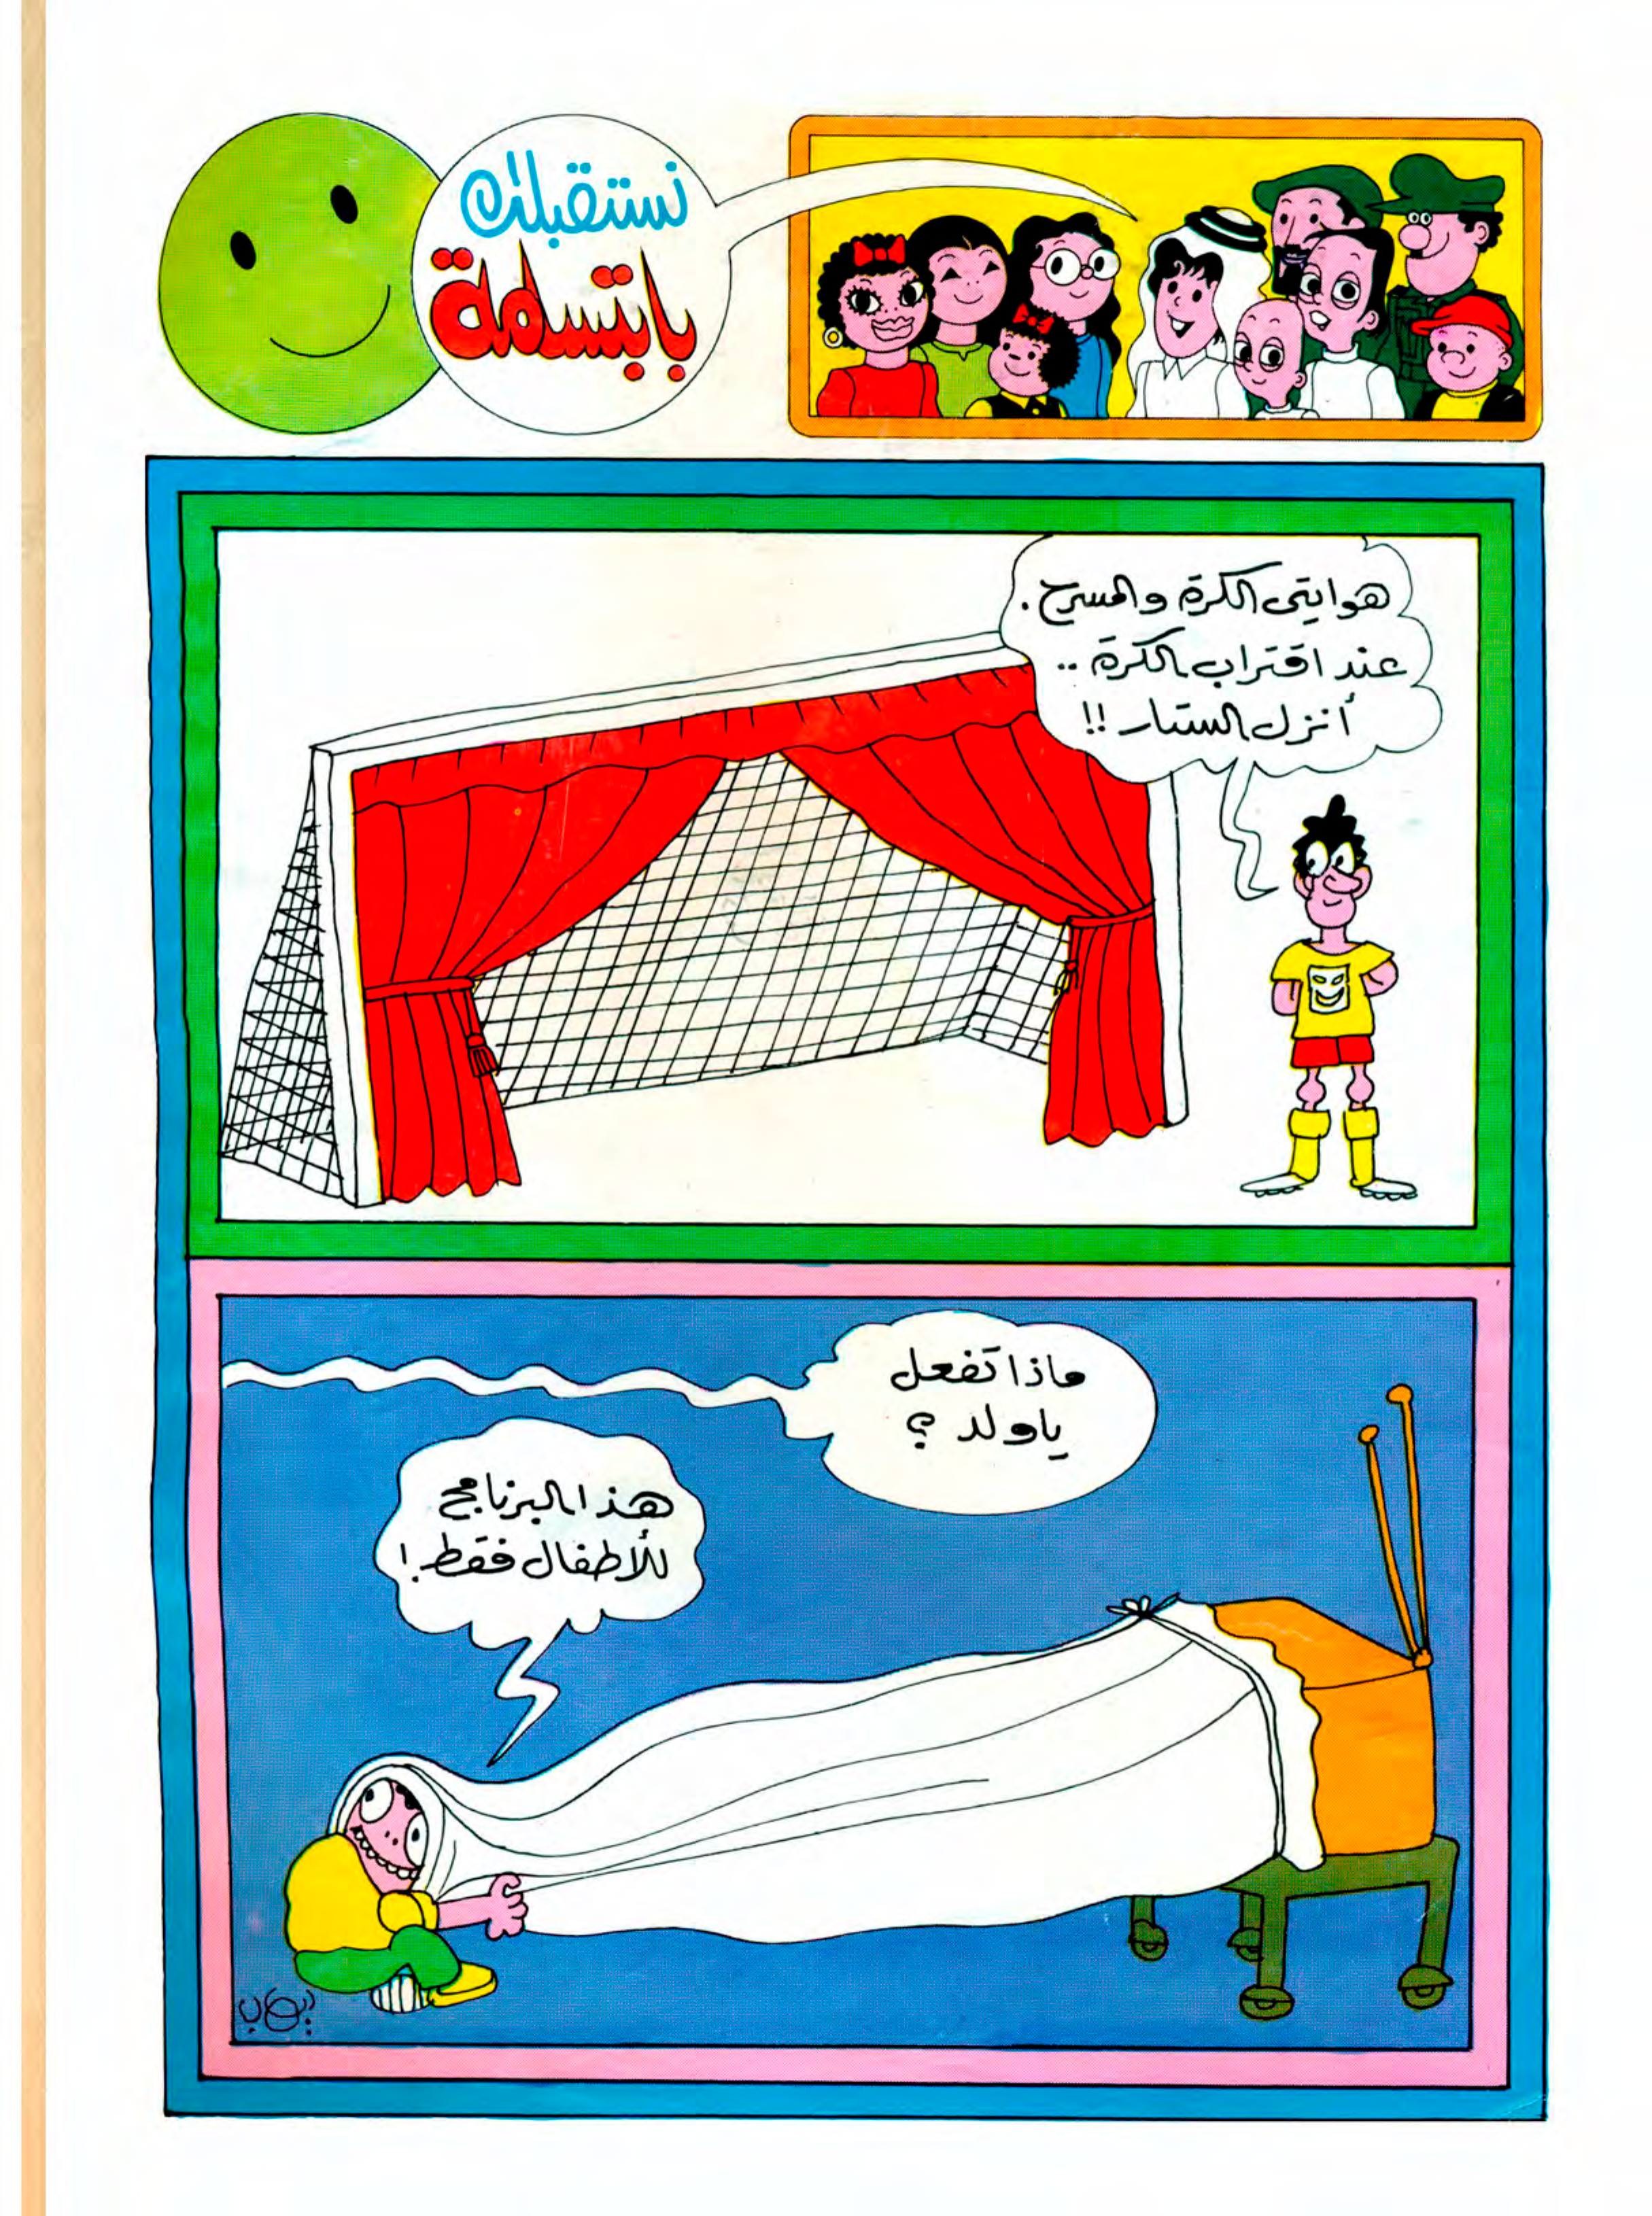 نستقبلك
بابتسامة
هوايتي الكرة والمسرح.
عند اقتراب الكرة ..
أنزل الستار !!
ماذا تفعل
ياولد ؟
هذا البرنامج
للأطفال فقط !